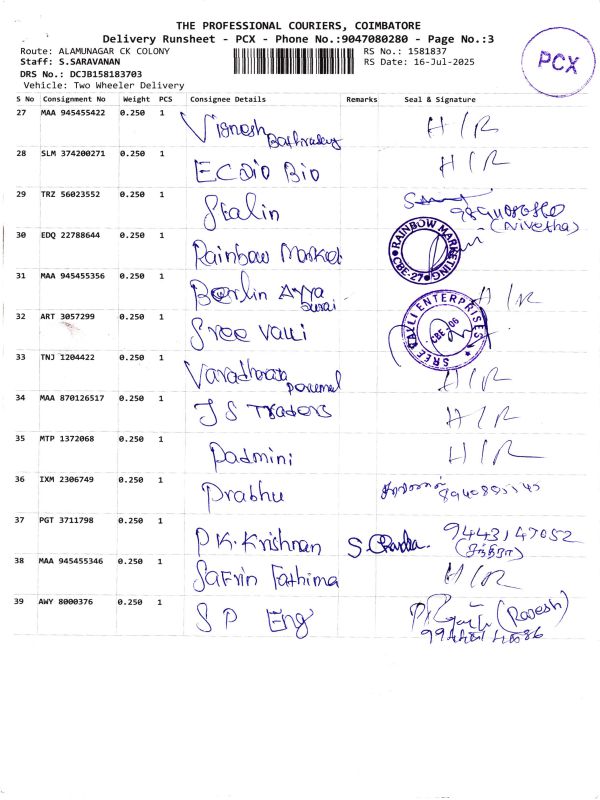 THE PROFESSIONAL COURIERS, COIMBATORE
Delivery Runsheet - PCX - Phone No.:9047080280 - Page No.:3
Route: ALAMUNAGAR CK COLONY
RS No.: 1581837
Staff: S.SARAVANAN
RS Date: 16-Jul-2025
DRS No.: DCJB158183703
Vehicle: Two Wheeler Delivery
PCX
S No Consignment No Weight PCS Consignee Details Remarks Seal & Signature
27 MAA 945455422 0.250 1 Vignesh H/R
28 SLM 374200271 0.250 1 ECDIO BIO H/R
29 TRZ 56023552 0.250 1 Stalin
(Nivetha)
30 EDQ 22788644 0.250 1 Rainbow Market
RAINBOW MARKETING
CBE-27
31 MAA 945455356 0.250 1 Berlin Ayya durai H/R
32 ART 3057299 0.250 1 Sree valli
SREE VALLI ENTERPRISES
CBE-06
33 TNJ 1204422 0.250 1 Varadharaja perumal H/R
34 MAA 870126517 0.250 1 J S Traders H/R
35 MTP 1372068 0.250 1 Padmini H/R
36 IXM 2306749 0.250 1 Prabhu
37 PGT 3711798 0.250 1 P.K. Krishnan S. Chandra. 9443147052
(சந்திரா)
38 MAA 945455346 0.250 1 Safrin Fathima H/R
39 AWY 8000376 0.250 1 S P Eng (Rajesh)